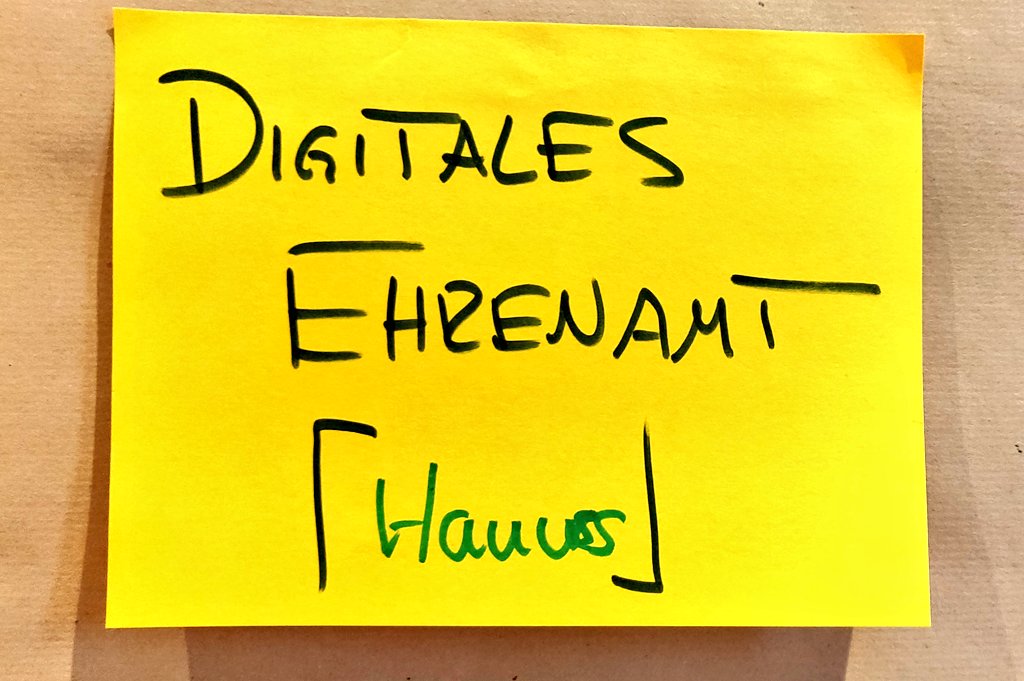 DIGITALES
EHRENAMT
[Hannes]